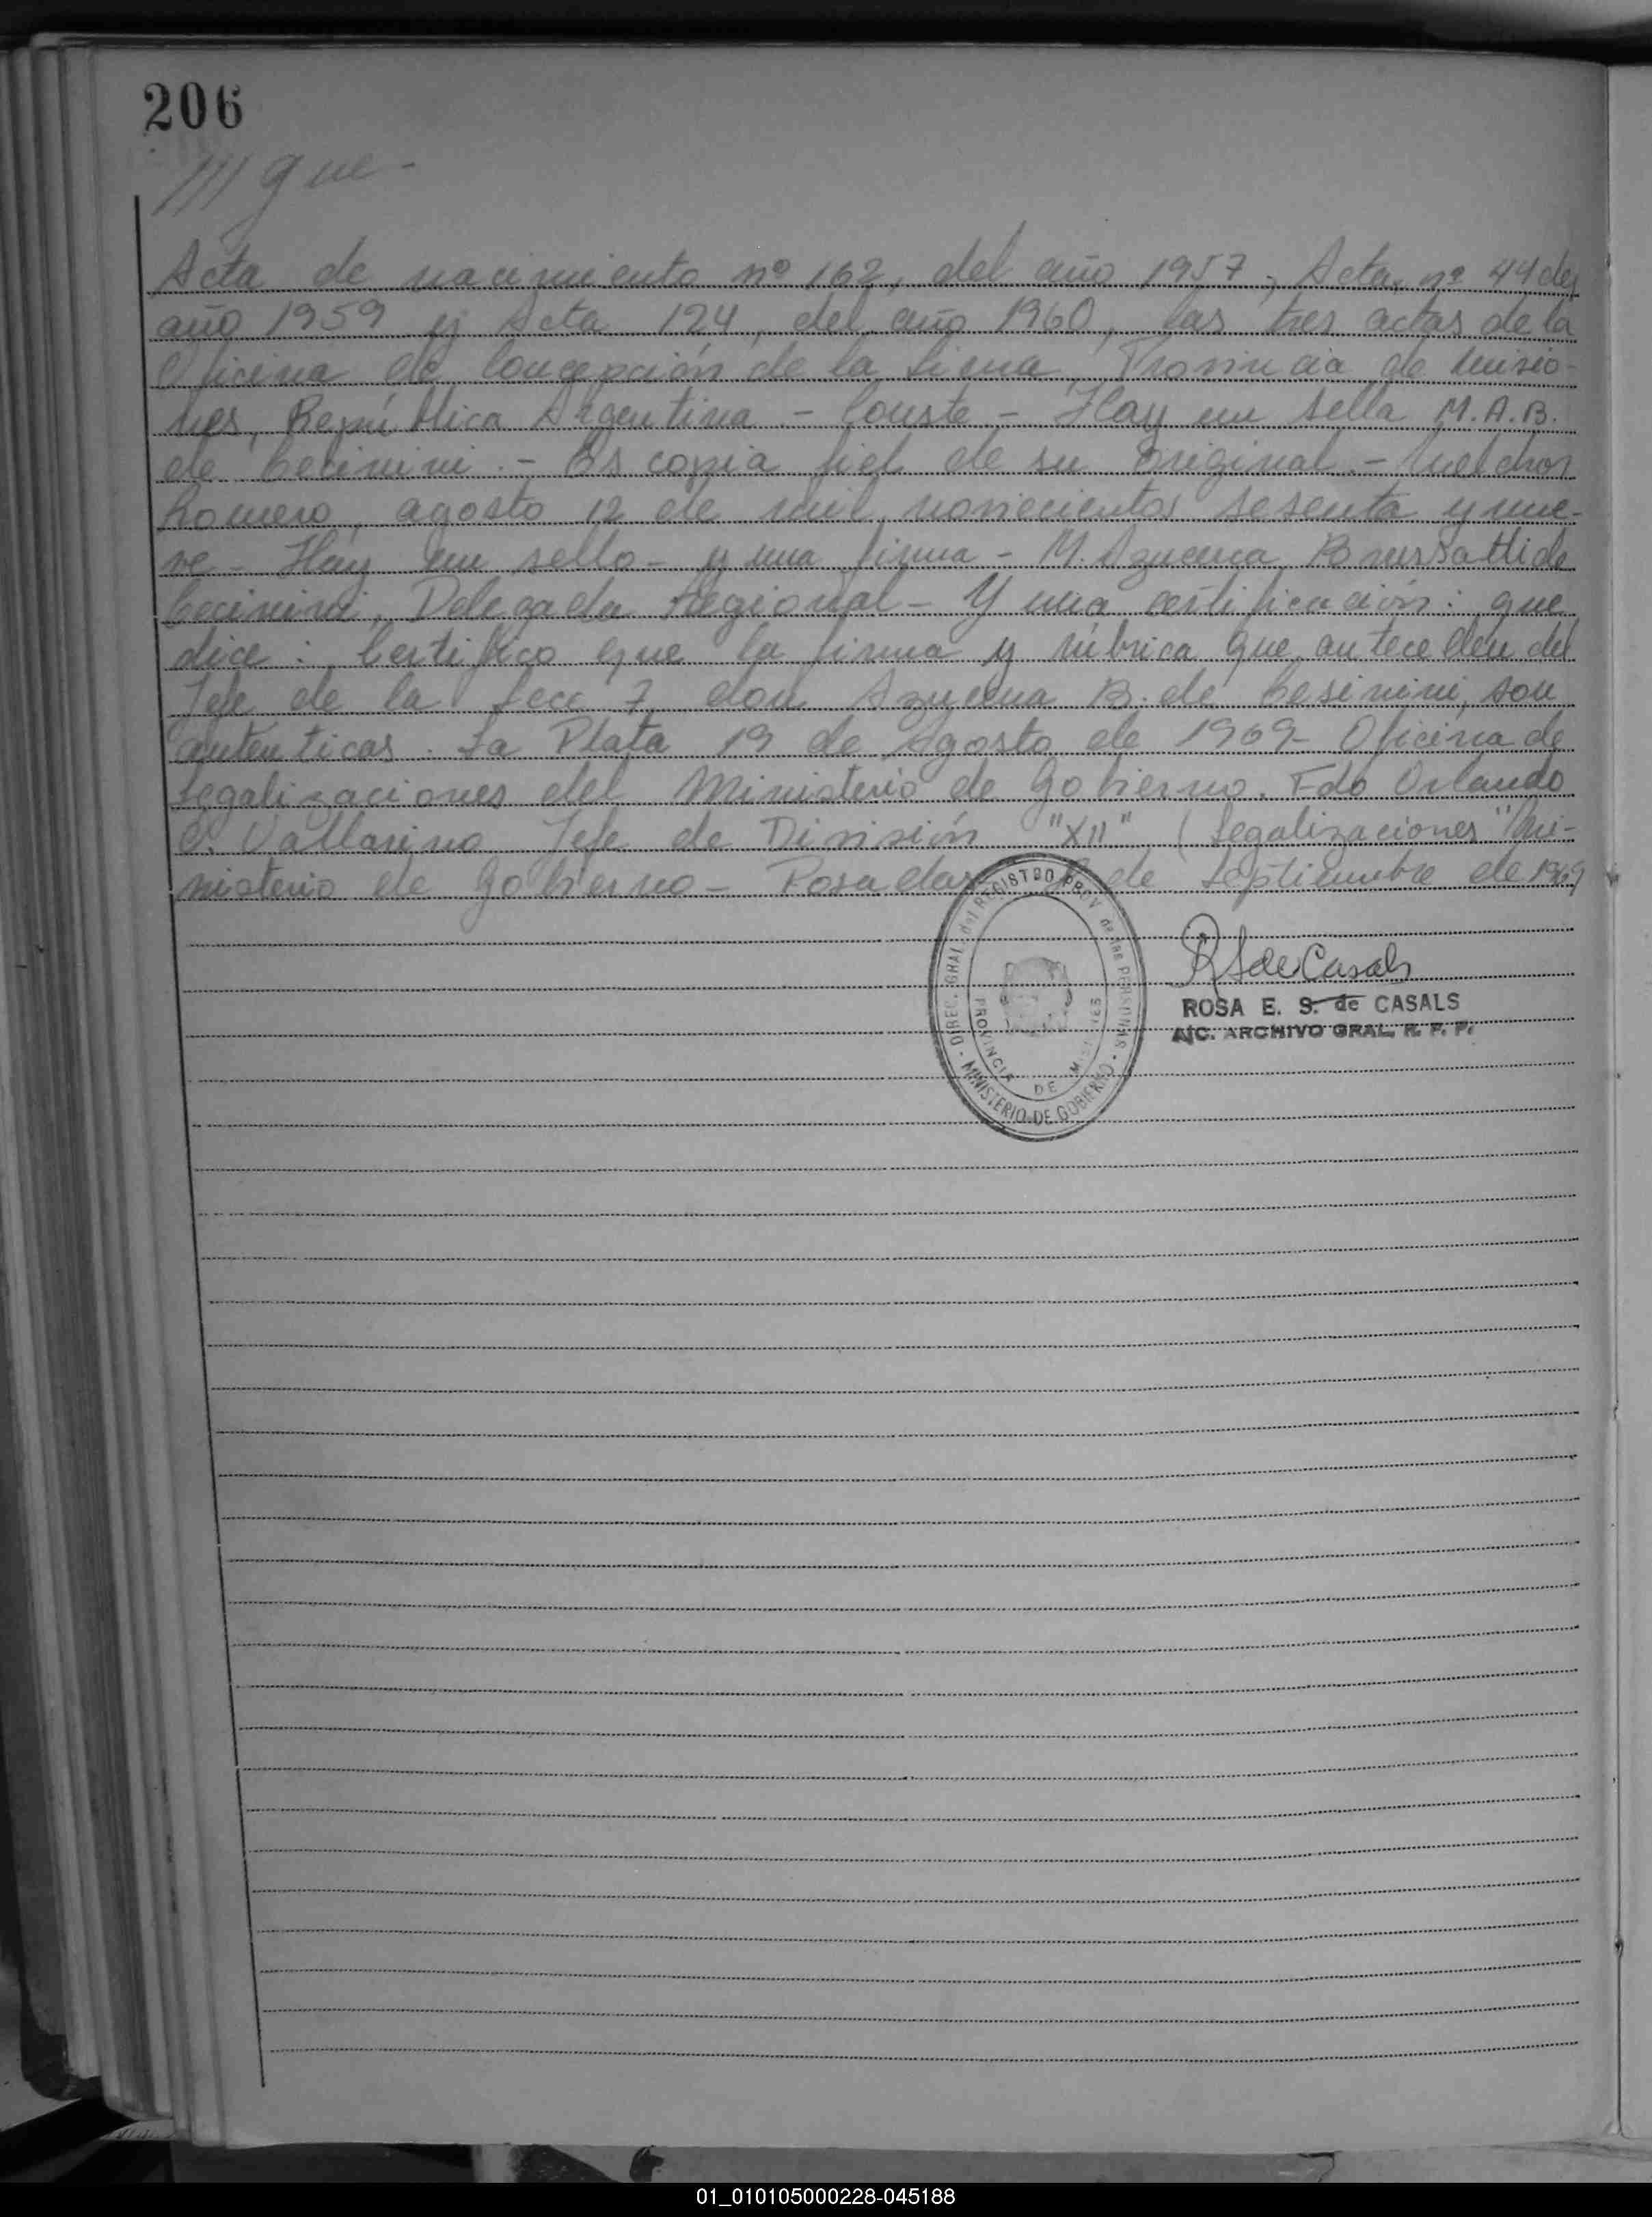 206
/// que -
Acta de nacimiento nº 162, del año 1957, Acta nº 44 del
año 1959 y Acta 124, del año 1960, las tres actas de la
Oficina de Concepción de la Sierra, Provincia de Misio-
nes, República Argentina - Conste - Hay un sello M.A.B.
de Cecinini. - Es copia fiel de su original. - Melchor
Romero, agosto 12 de mil novecientos sesenta y nue-
ve - Hay un sello - y una firma - M. Azucena Brussatti de
Cecinini, Delegada Regional - Y una certificación: que
dice: Certifico que la firma y rúbrica que anteceden del
Jefe de la Secc 7, don Azucena B. de Cesinini, son
auténticas. La Plata 19 de Agosto de 1969 - Oficina de
Legalizaciones del Ministerio de Gobierno. Fdo Orlando
C. Vallarino Jefe de División "XII" (Legalizaciones" Mi-
nisterio de Gobierno - Posadas de Septiembre de 1969
DIREC. GRAL. del REGISTRO PROV. de las PERSONAS
PROVINCIA DE MISIONES
- MINISTERIO DE GOBIERNO -
R S de Casals
ROSA E. S. de CASALS
A/C. ARCHIVO GRAL. R. P. P.
01_010105000228-045188